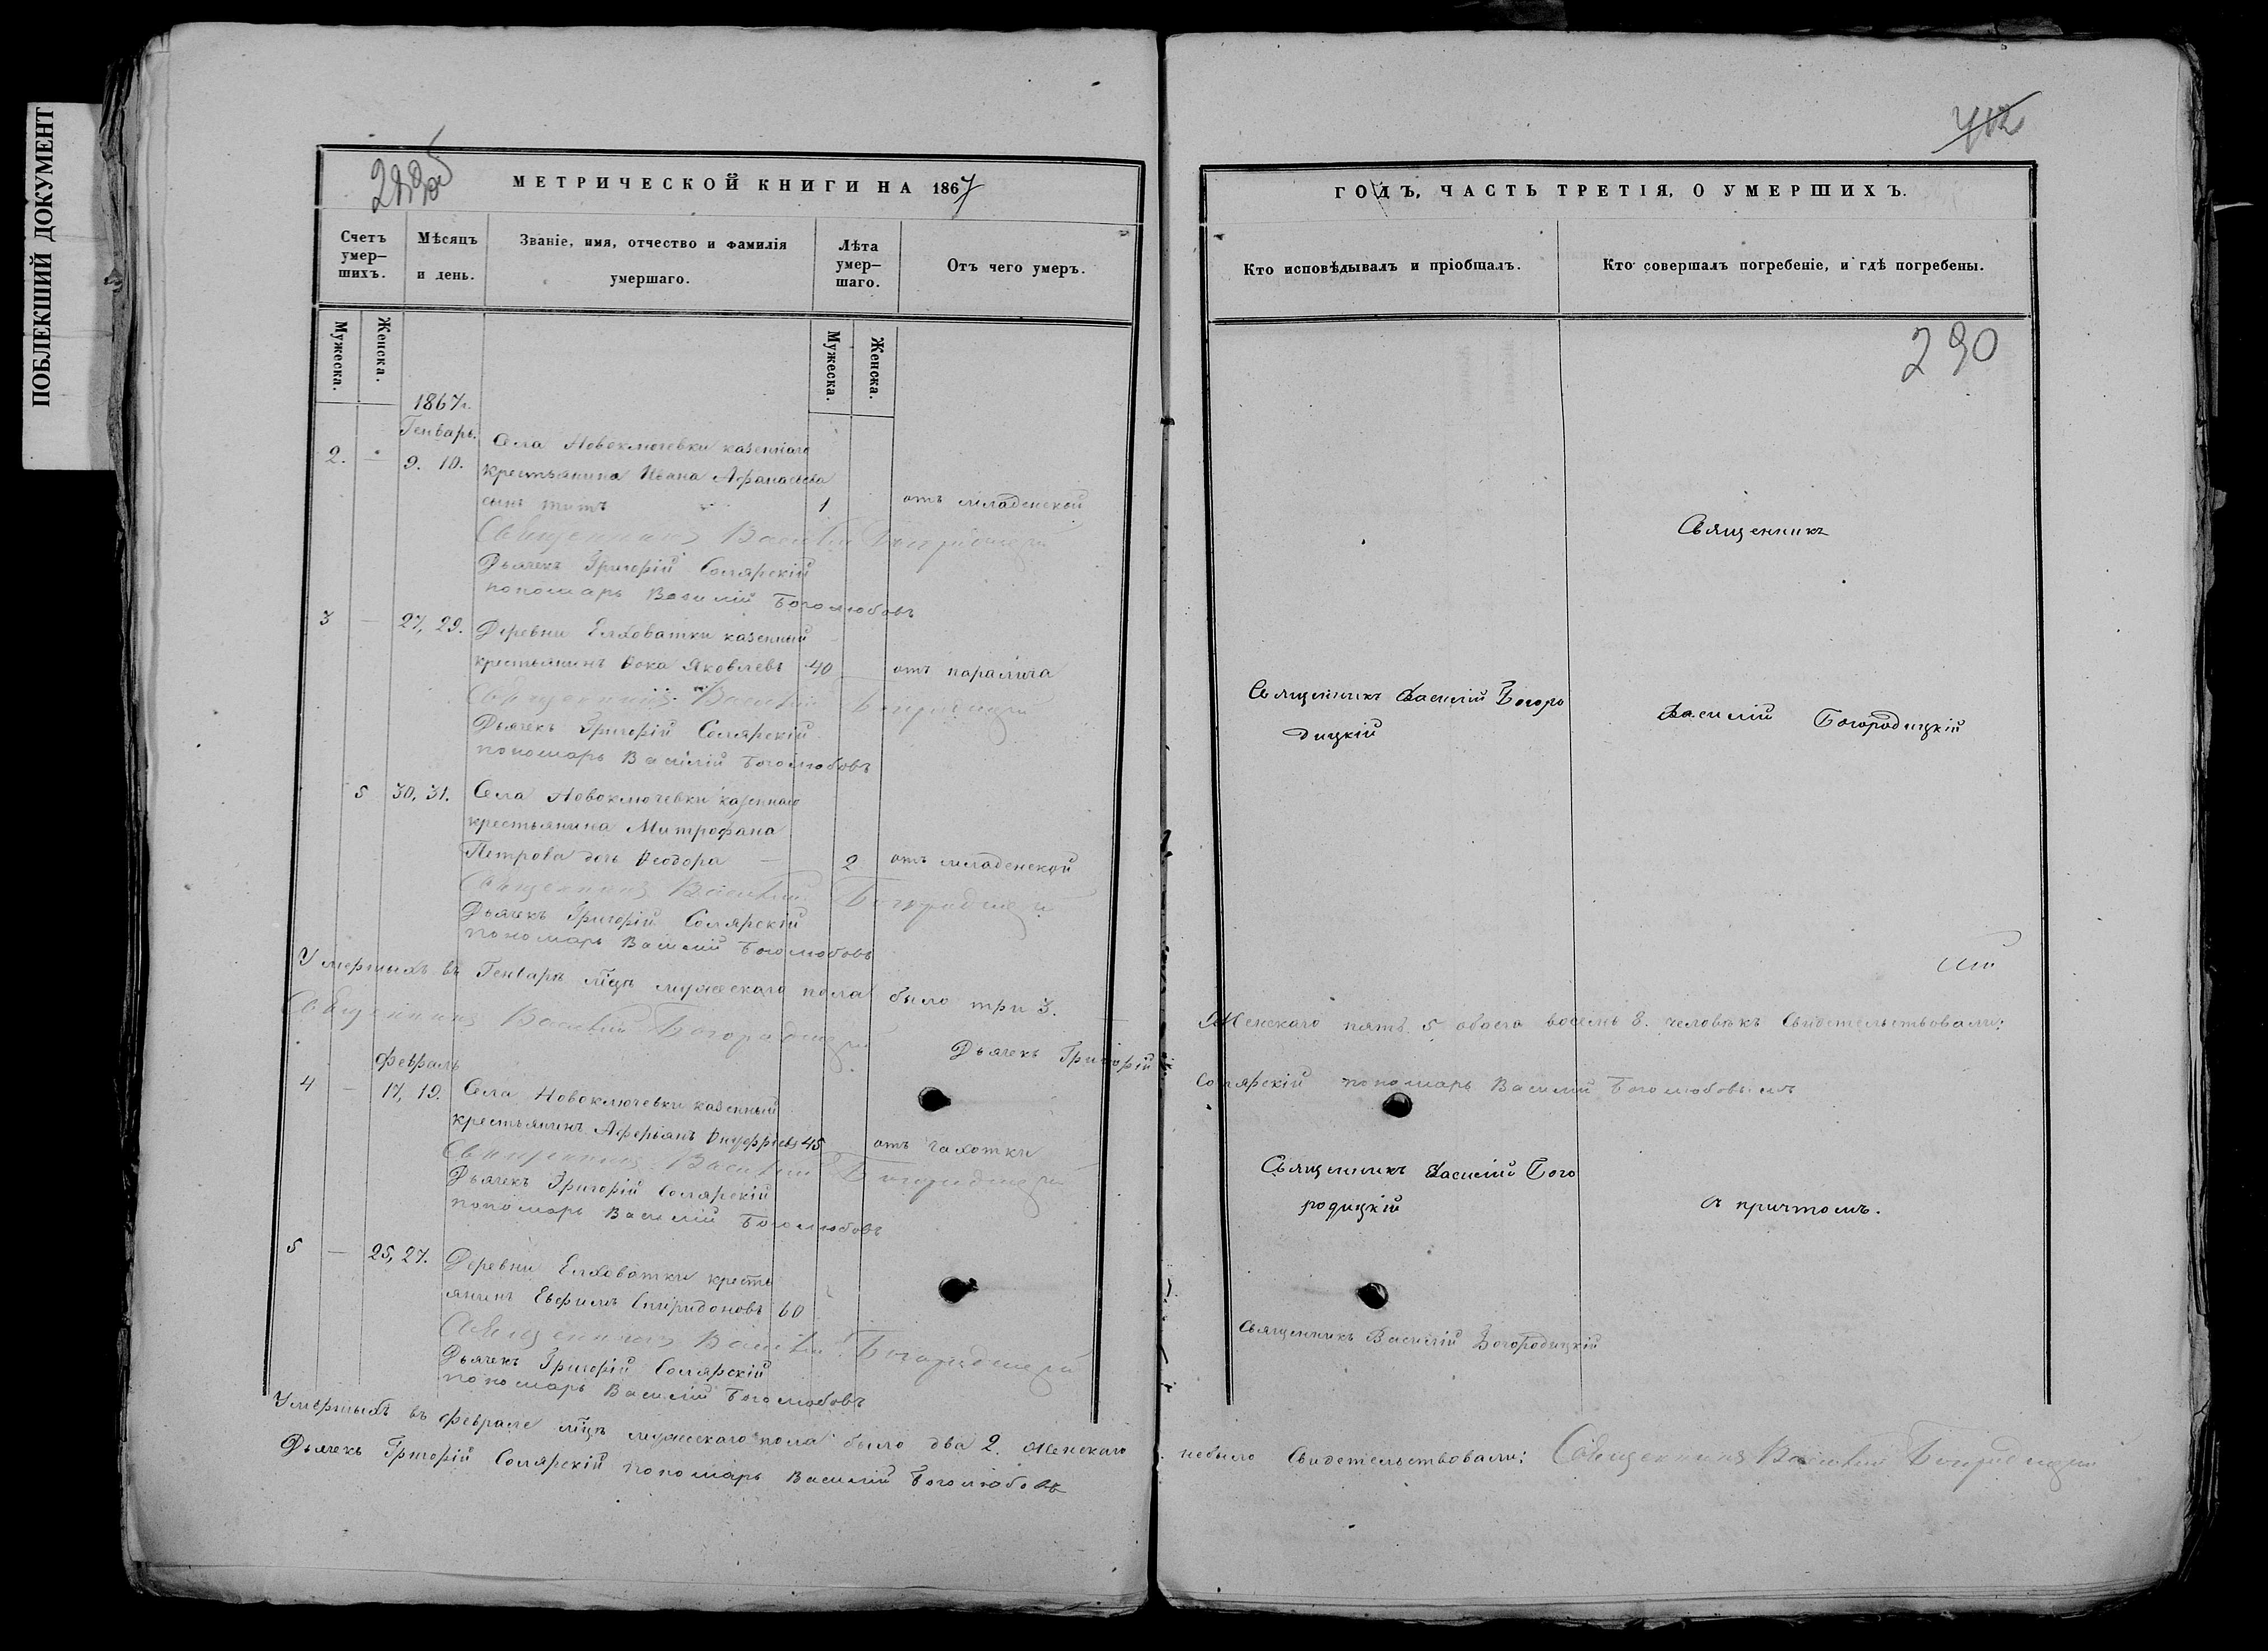 ПОБЛЕКШИЙ ДОКУМЕНТ
МЕТРИЧЕСКОЙ КНИГИ НА 1867
Счетъ умер-шихъ.
Мѣсяцъ и день.
Званіе, имя, отчество и фамилія умершаго.
Лѣта умер-шаго.
Отъ чего умеръ.
Мужеска.
Женска.
Мужеска.
Женска.
1867г.
Генварь.
2. — 9. 10. Села Новоключевки казеннаго
крестьянина Ивана Афанасьева
сынъ Титъ 1 отъ младенской
Священникъ Василій Богородицкій
Дьячекъ Григорій Солярскій
пономарь Василій Боголюбовъ
3 — 27, 29. Деревни Елховатки казенный
крестьянинъ Ѳока Яковлевъ 40 отъ паралича
Священникъ Василій Богородицкій
Дьячекъ Григорій Солярскій
пономарь Василій Боголюбовъ
5 30, 31. Села Новоключевки казеннаго
крестьянина Митрофана
Петрова дочь Ѳеодора — 2 отъ младенской
Священникъ Василій Богородицкій
Дьячекъ Григорій Солярскій
пономарь Василій Боголюбовъ
Умершыхъ въ Генварѣ мцѣ мужескаго пола было три 3.
Священникъ Василій Богородицкій
Дьячекъ Григорій
Февраль
4 — 17, 19. Села Новоключевки казенный
крестьянинъ Аферьянъ 45 отъ чахотки
Священникъ Василій Богородицкій
Дьячекъ Григорій Солярскій
пономарь Василій Боголюбовъ
5 — 25, 27. Деревни Елховатки кресть
янинъ Евфимъ Спиридоновъ 60
Священникъ Василій Богородицкій
Дьячекъ Григорій Солярскій
пономарь Василій Боголюбовъ
Умершыхъ въ Феврале мцѣ мужескаго пола было два 2. Женскаго
Дьячекъ Григорій Солярскій пономарь Василій Боголюбовъ
ГОДЪ, ЧАСТЬ ТРЕТІЯ, О УМЕРШИХЪ.
Кто исповѣдывалъ и пріобщалъ.
Кто совершалъ погребеніе, и гдѣ погребены.
290
Священникъ
Священникъ Василій Богоро
дицкій
Василій Богородицкій
Женскаго пять 5 обоего восемь 8. человѣкъ Свидетельствовали:
Солярскій пономарь Василій Боголюбовъ
Священникъ Василій Бого
родицкій
съ причтомъ.
Священникъ Василій Богородицкій
небыло Свидетельствовали: Священникъ Василій Богородицкій